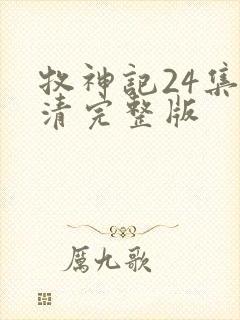 牧神記24集
清完整版
厲九歌